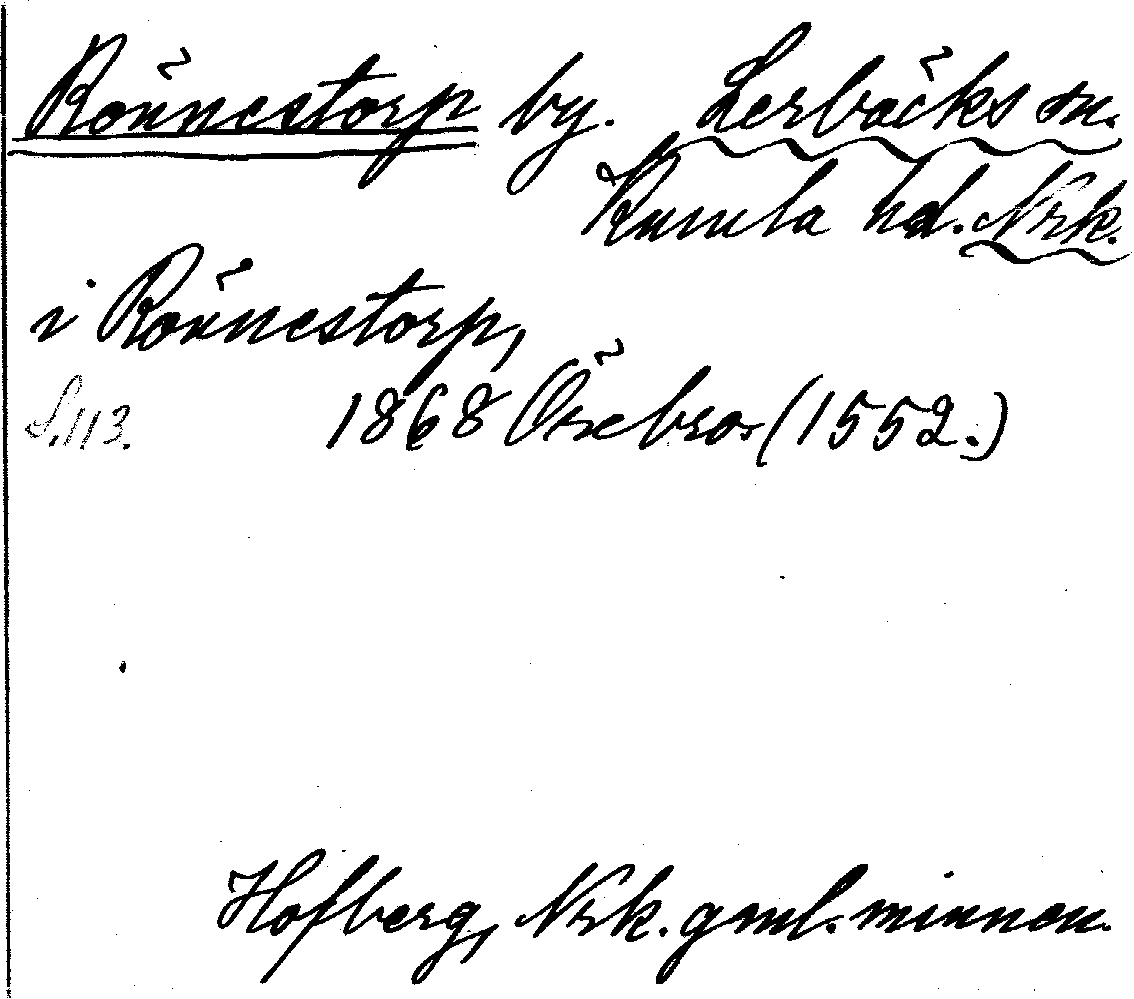 Rönnestorp by. Lerbäcks sn.
Kumla hd. Nrk.
i Rönnestorp,
S. 113. 1868 Örebro (1552.)
Hofberg, Nrk. gml. minnen.